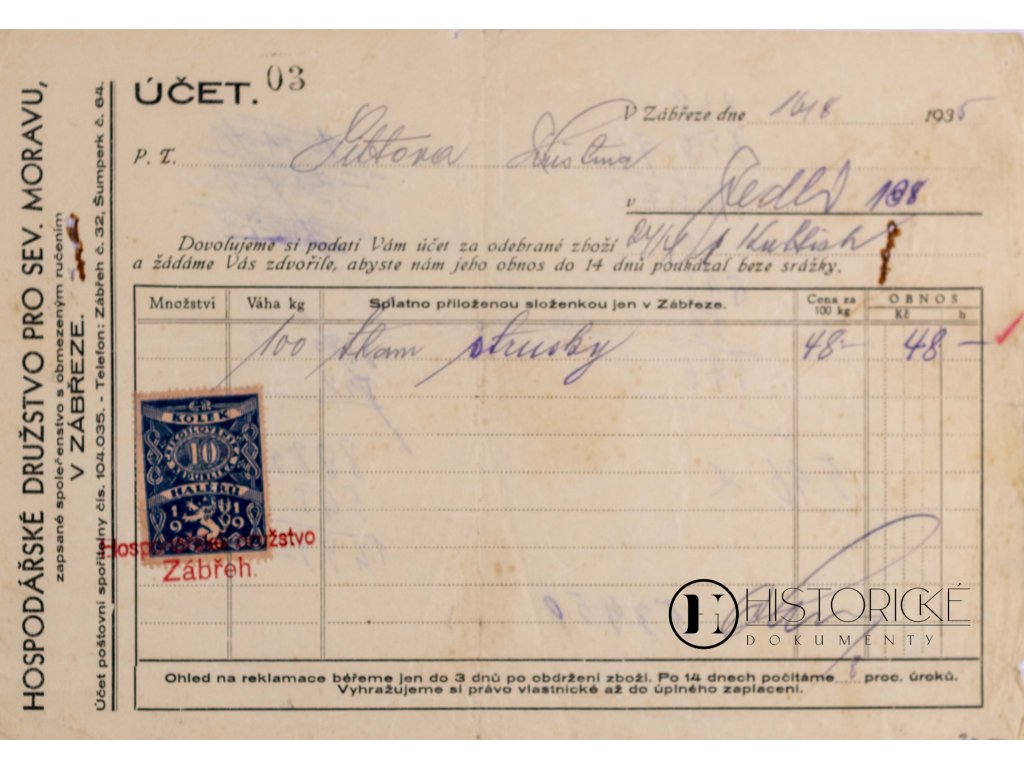 HOSPODÁŘSKÉ DRUŽSTVO PRO SEV. MORAVU,
zapsané společenstvo s obmezeným ručením
V ZÁBŘEZE.
Účet poštovní spořitelny čís. 104.035. - Telefon: Zábřeh č. 32, Šumperk č. 64.
ÚČET. 03
V Zábřeze dne 16/8 1935
P. T.
v 198
Dovolujeme si podati Vám účet za odebrané zboží
a žádáme Vás zdvořile, abyste nám jeho obnos do 14 dnů poukázal beze srážky.
Množství Váha kg Splatno přiloženou složenkou jen v Zábřeze. Cena za 100 kg OBNOS Kč h
100 strusky 48.- 48 —
KOLEK
ČESKOSLOVENSKÁ
10
REPUBLIKA
HALÉŘŮ
1919
Hospodářské družstvo
Zábřeh.
HISTORICKÉ
DOKUMENTY
Ohled na reklamace béřeme jen do 3 dnů po obdržení zboží. Po 14 dnech počítáme 8 proc. úroků.
Vyhražujeme si právo vlastnické až do úplného zaplacení.